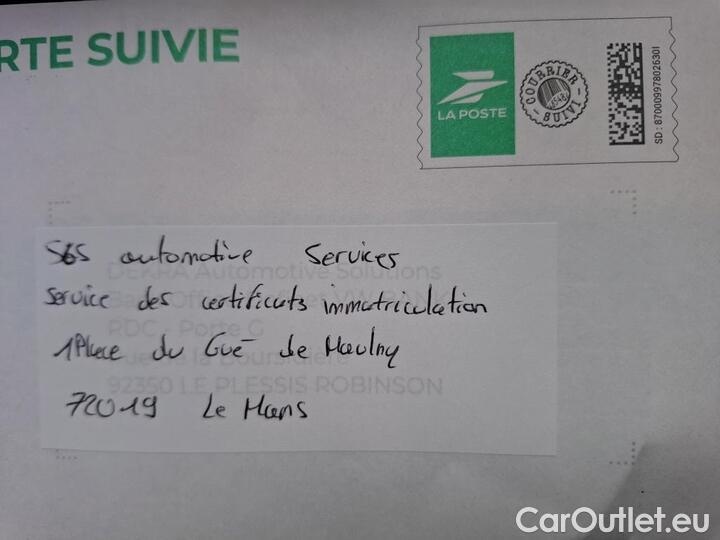 RTE SUIVIE
LA POSTE
COURRIER
SUIVI
SD : 87000997802630I
SGS automotive Services
DEKRA Automotive Solutions
Service des certificats immatriculation
RDC - Porte G
1 Place du Gué de Maulny
92350 LE PLESSIS ROBINSON
72019 Le Mans
CarOutlet.eu